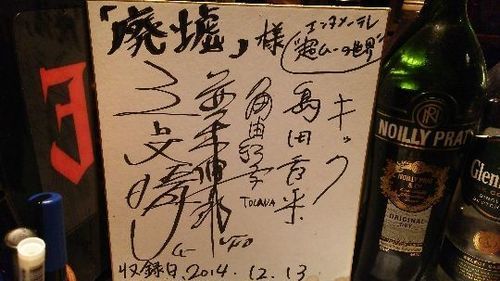 「廃墟」様
エンタメ〜テレ
"超ムーの世界"
キック
島田秀平
角由紀子
TOCANA
並木伸一郎
三上丈晴
ムー
UFO
収録日 2014.12.13
NR
NOILLY PRAT
NOILLY PRAT
ORIGINAL
DRY
Glen